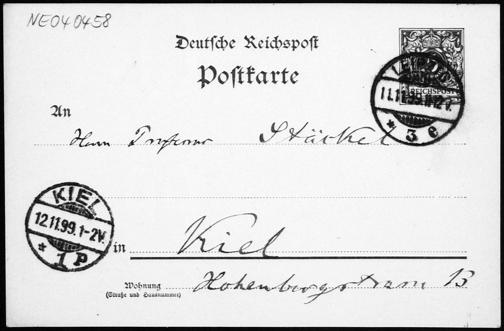 NE040458
Deutsche Reichspost
Postkarte
REICHSPOST
LEIPZIG
11.11.99.11-12V.
* 3 e
An
Herrn Professor Stäckel
KIEL
12.11.99.1-2V.
* 1 P
in Kiel
Wohnung
(Straße und Hausnummer)
Hohenbergstrasse 13